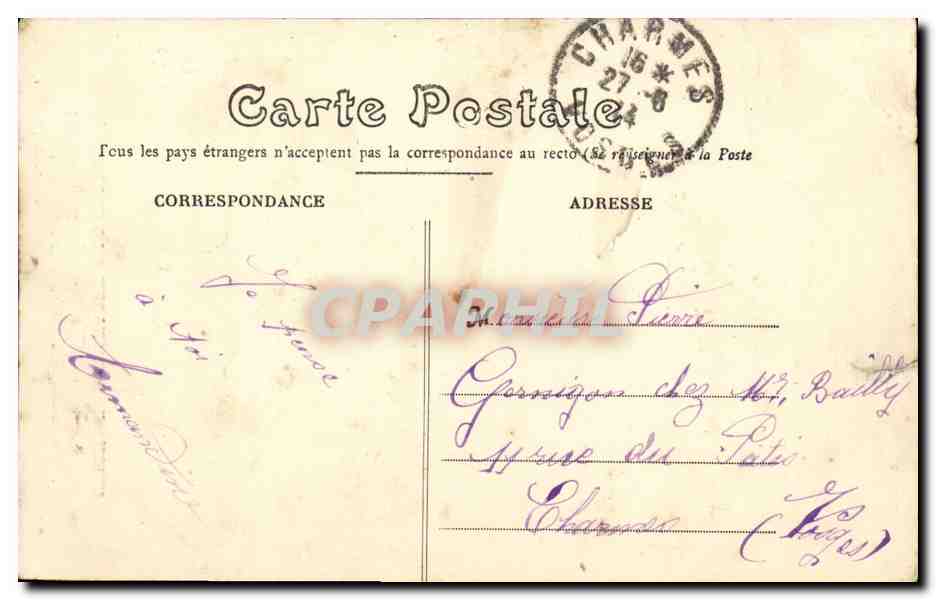 Carte Postale
Tous les pays étrangers n'acceptent pas la correspondance au recto (Se renseigner à la Poste
CHARMES
16 *
27 -8
24
VOSGES
CORRESPONDANCE
ADRESSE
Je pense
à toi
Armandine
CPARHII
Monsieur Pierre
Gernigon chez Mr, Bailly
11 rue du Patis
Charmes
(Vosges)